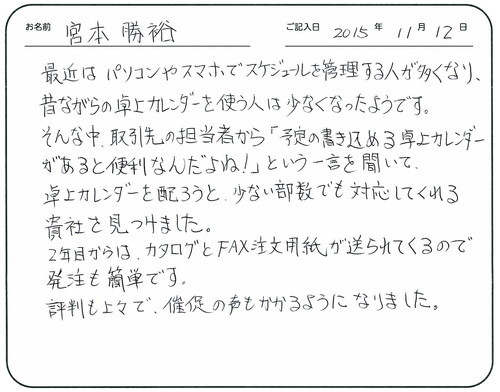 お名前 宮本 勝裕 ご記入日 2015 年 11 月 12 日
最近は パソコンやスマホでスケジュールを管理する人が多くなり、
昔ながらの卓上カレンダーを使う人は少なくなったようです。
そんな中、取引先の担当者から「予定の書き込める卓上カレンダー
があると便利なんだよね!」という一言を聞いて、
卓上カレンダーを配ろうと、少ない部数でも対応してくれる
貴社を見つけました。
2年目からは、カタログとFAX注文用紙が送られてくるので
発注も簡単です。
評判も上々で、催促の声もかかるようになりました。